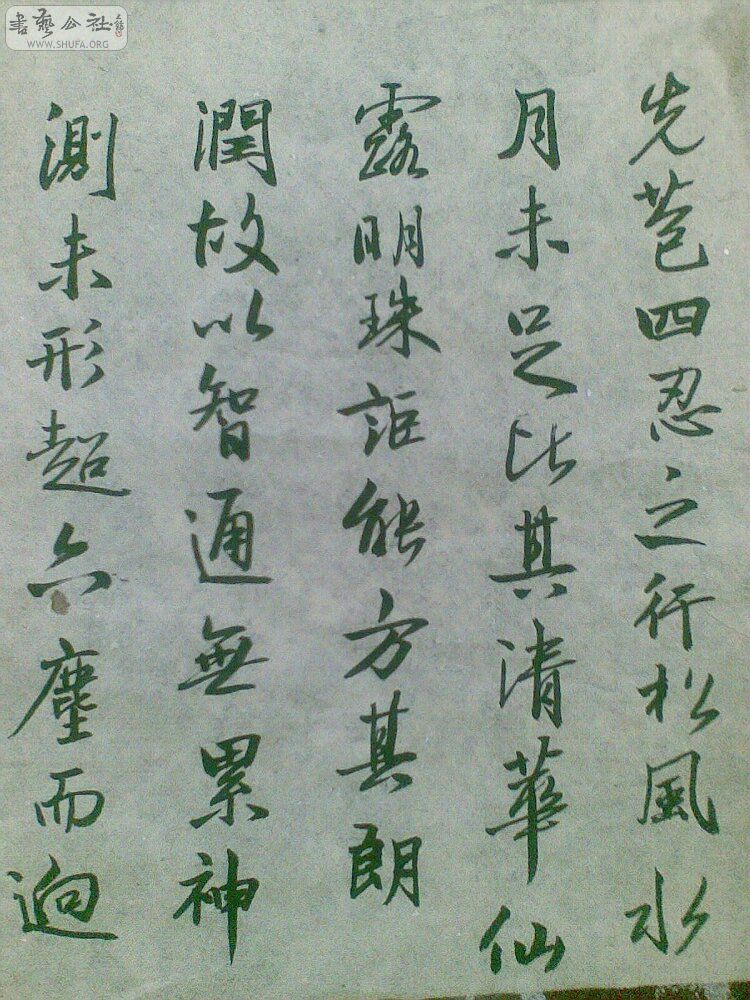 先苞四忍之行松風水
月未足比其清華仙
露明珠詎能方其朗
潤故以智通無累神
測未形超六塵而迥
書藝公社
WWW.SHUFA.ORG